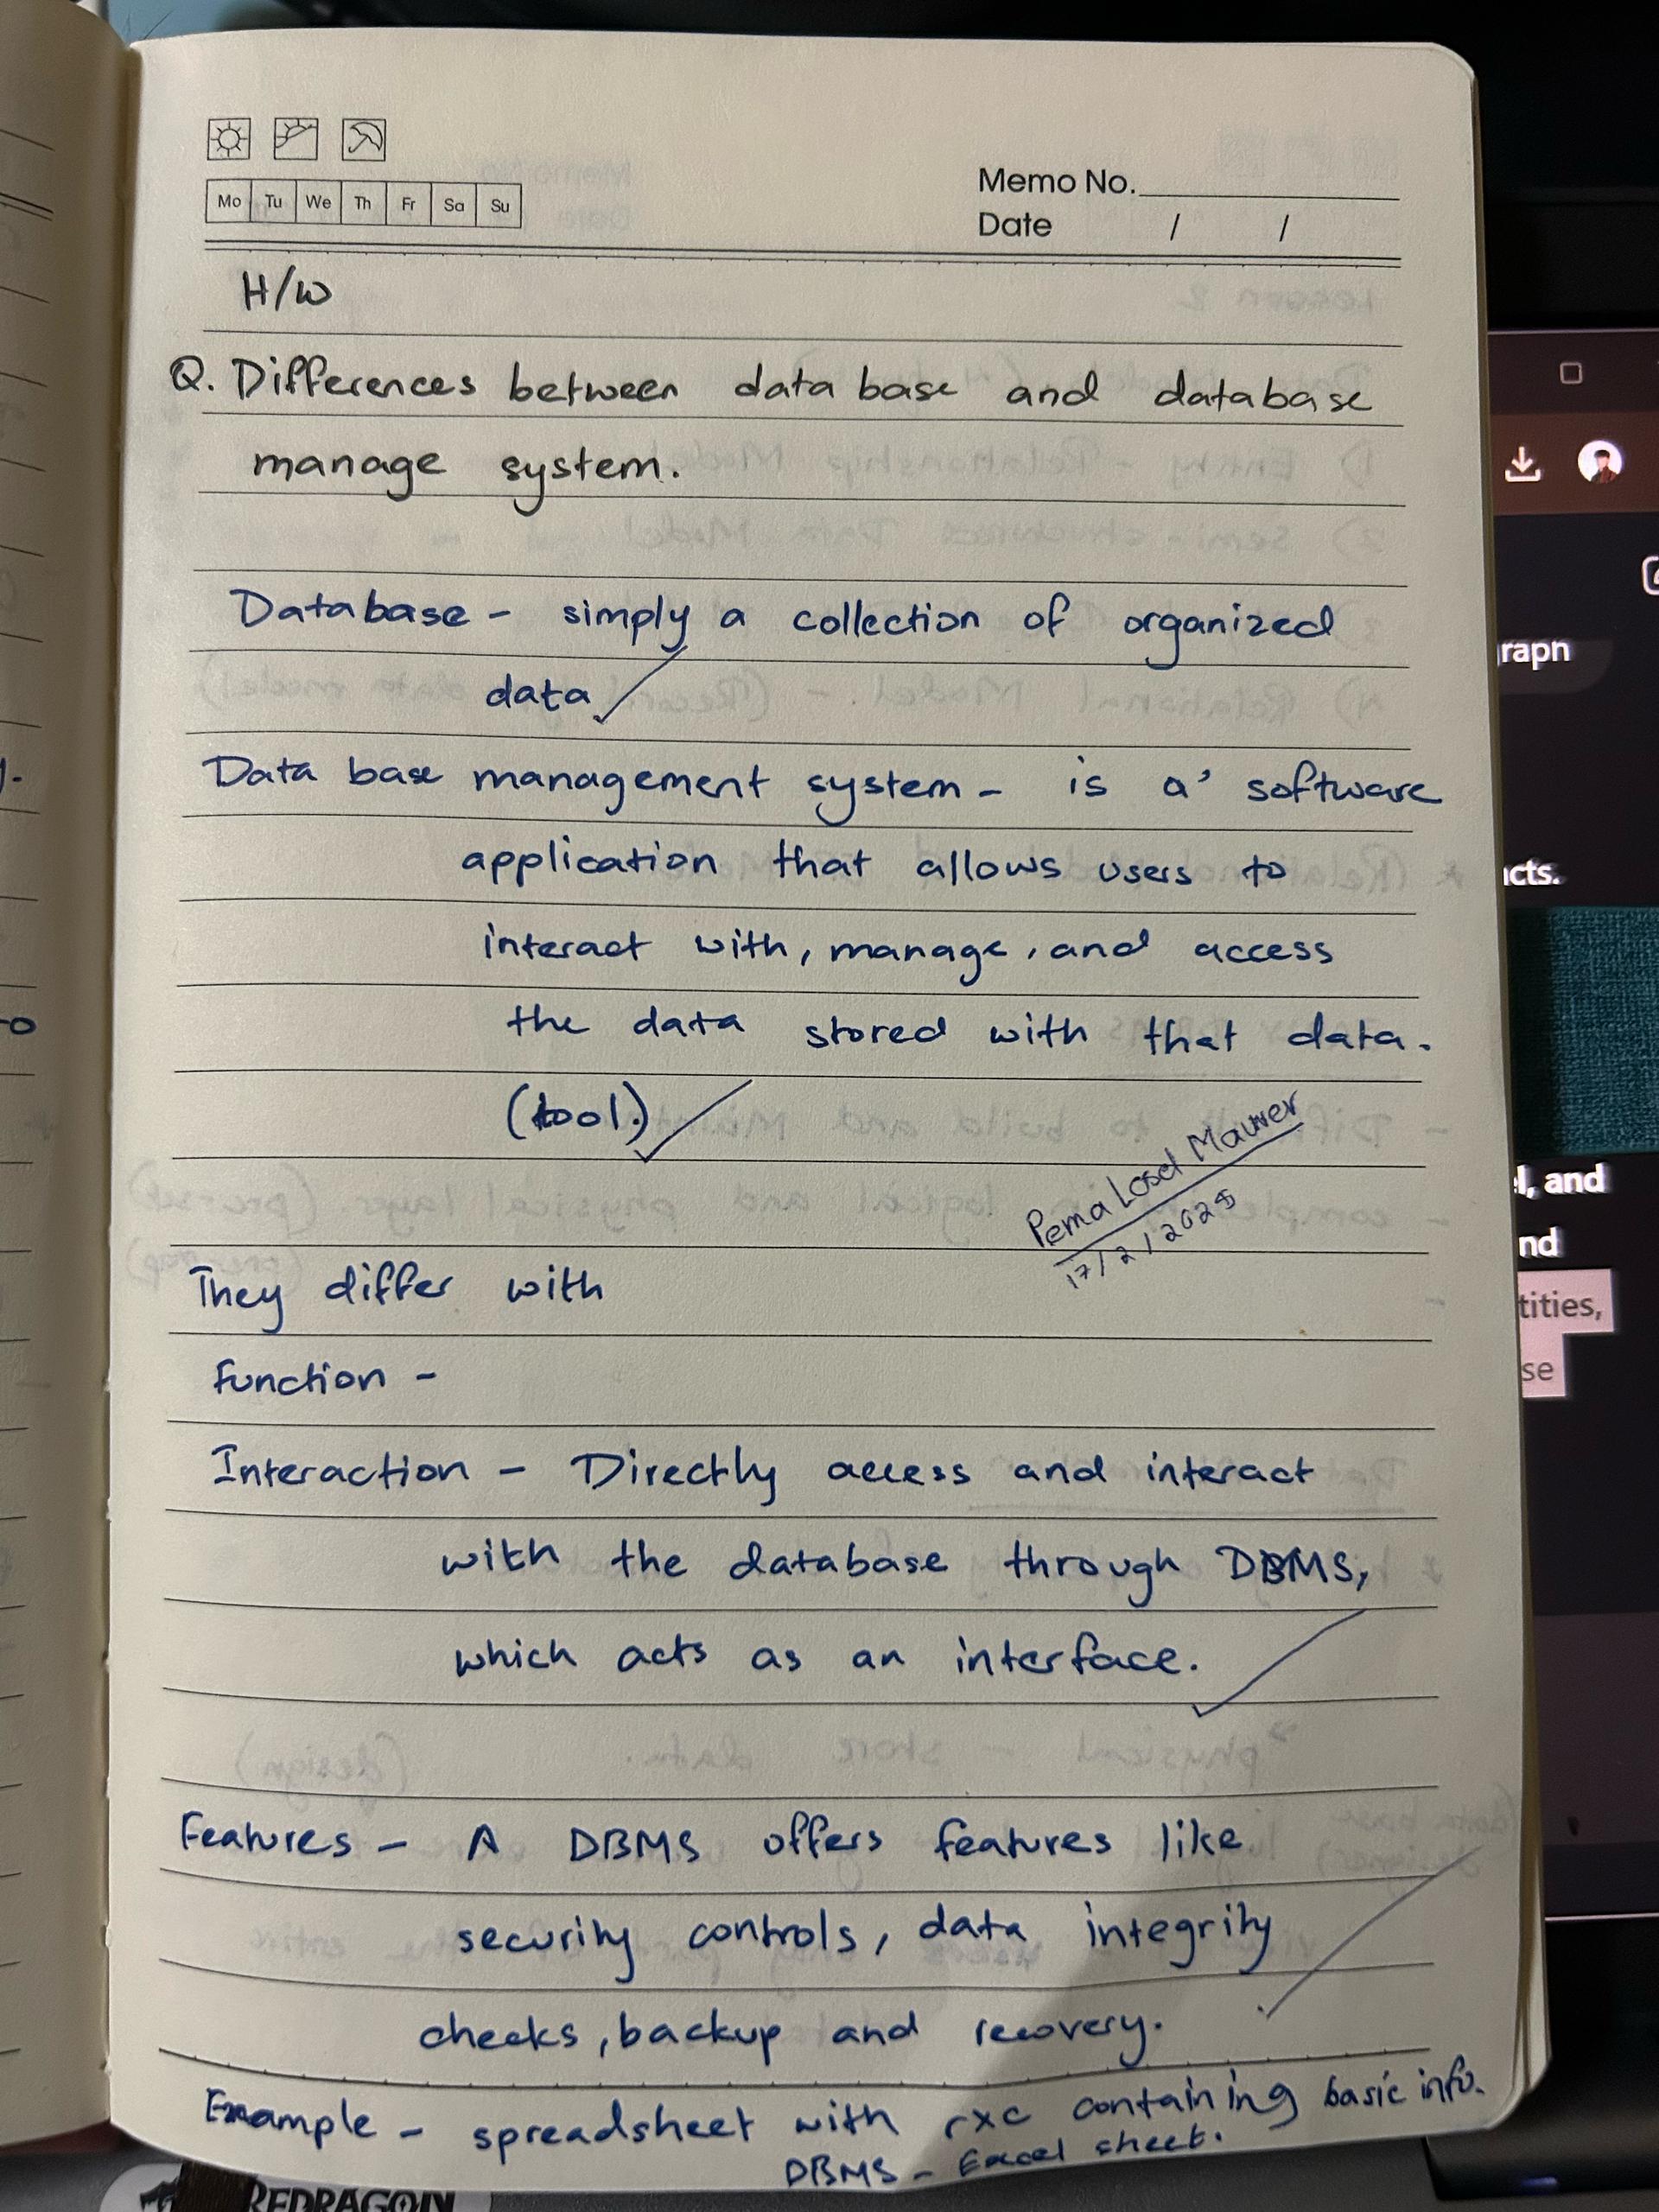 Mo Tu We Th Fr Sa Su
Memo No.
Date / /
H/W
Q. Differences between data base and database
manage system.
Database - simply a collection of organized
data
Data base management system - is a' software
application that allows users to
interact with, manage, and access
the data stored with that data.
(tool.)
Pema Losel Maurer
17/2/2025
They differ with
Function -
Interaction - Directly access and interact
with the database through DBMS,
which acts as an interface.
Features - A DBMS offers features like
security controls, data integrity
checks, backup and recovery.
Example - spreadsheet with rxc containing basic info.
DBMS - Excel sheet.
cts.
l, and
nd
tities,
se
REDRAGON